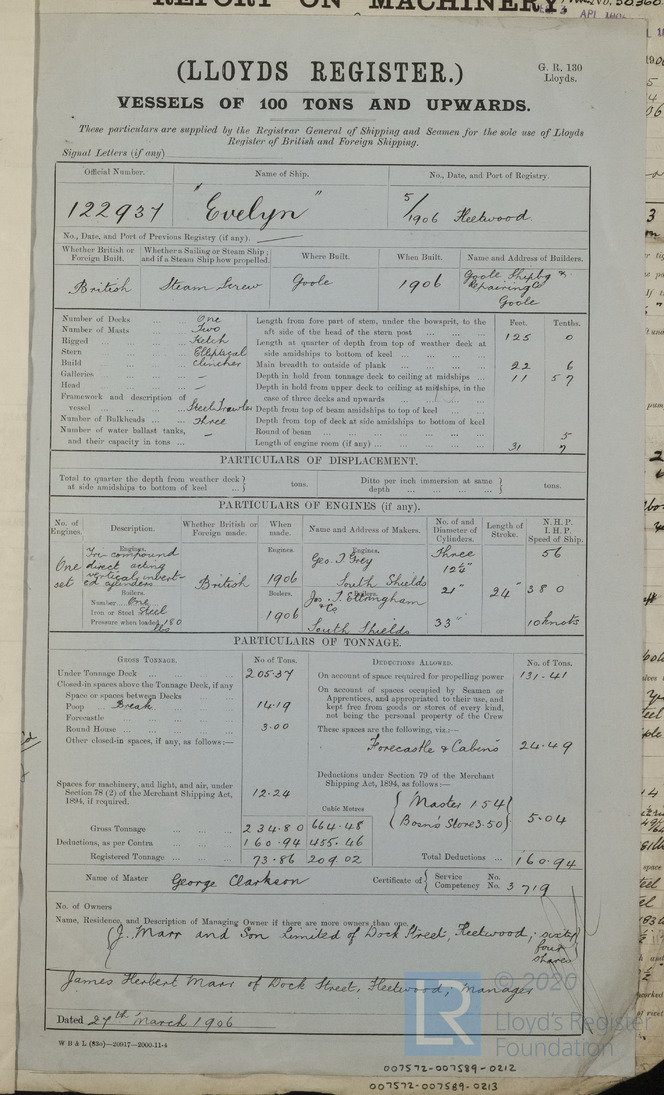 REPORT ON MACHINERY
No. 50,360
(LLOYDS REGISTER.)
G. R. 130
Lloyds.
VESSELS OF 100 TONS AND UPWARDS.
These particulars are supplied by the Registrar General of Shipping and Seamen for the sole use of Lloyds
Register of British and Foreign Shipping.
Signal Letters (if any)
Official Number. Name of Ship. No., Date, and Port of Registry.
122937 "Evelyn" 5/1906 Fleetwood
No., Date, and Port of Previous Registry (if any).
Whether British or Foreign Built. Whether a Sailing or Steam Ship; and if a Steam Ship how propelled. Where Built. When Built. Name and Address of Builders.
British Steam Screw Goole 1906 Goole Shipbg & Repairing Co Goole
Number of Decks One
Number of Masts Two
Rigged Ketch
Stern Elliptical
Build Clincher
Galleries —
Head —
Framework and description of vessel Steel Trawler
Number of Bulkheads Three
Number of water ballast tanks, and their capacity in tons —
Feet. Tenths.
Length from fore part of stem, under the bowsprit, to the aft side of the head of the stern post 125 0
Length at quarter of depth from top of weather deck at side amidships to bottom of keel
Main breadth to outside of plank 22 6
Depth in hold from tonnage deck to ceiling at midships 11 57
Depth in hold from upper deck to ceiling at midships, in the case of three decks and upwards
Depth from top of beam amidships to top of keel
Depth from top of deck at side amidships to bottom of keel
Round of beam 5
Length of engine room (if any) 31 7
PARTICULARS OF DISPLACEMENT.
Total to quarter the depth from weather deck at side amidships to bottom of keel tons.
Ditto per inch immersion at same depth tons.
PARTICULARS OF ENGINES (if any).
No. of Engines. Description. Whether British or Foreign made. When made. Name and Address of Makers. No. of and Diameter of Cylinders. Length of Stroke. N. H. P. I. H. P. Speed of Ship.
One set
Engines.
Tri-compound direct acting vertical invert-ed cylinders
Boilers.
Number One
Iron or Steel Steel
Pressure when loaded 180 lbs
British
Engines.
1906
Boilers.
1906
Engines.
Geo. T. Grey
South Shields
Boilers.
Jos. T. Eltringham & Co
South Shields
Three
21"
33"
24"
56
380
10 knots
PARTICULARS OF TONNAGE.
GROSS TONNAGE. No of Tons.
Under Tonnage Deck 205.37
Closed-in spaces above the Tonnage Deck, if any
Space or spaces between Decks
Poop Break 14.19
Forecastle
Round House 3.00
Other closed-in spaces, if any, as follows:—
Spaces for machinery, and light, and air, under Section 78 (2) of the Merchant Shipping Act, 1894, if required. 12.24
Cubic Metres
Gross Tonnage 234.80 664.48
Deductions, as per Contra 160.94 455.46
Registered Tonnage 73.86 209.02
DEDUCTIONS ALLOWED. No. of Tons.
On account of space required for propelling power 131.41
On account of spaces occupied by Seamen or Apprentices, and appropriated to their use, and kept free from goods or stores of every kind, not being the personal property of the Crew
These spaces are the following, viz.:—
Forecastle & Cabins 24.49
Deductions under Section 79 of the Merchant Shipping Act, 1894, as follows:—
Master 1.54
Bosns Store 3.50
5.04
Total Deductions 160.94
Name of Master George Clarkson Certificate of Service Competency No. No. 3719
No. of Owners
Name, Residence, and Description of Managing Owner if there are more owners than one.
J. Marr and Son Limited of Dock Street, Fleetwood; sixty four shares
James Herbert Marr of Dock Street, Fleetwood; Manager
Dated 27th March 1906
© 2020
LR
Lloyd's Register
Foundation
007572-007589-0212
007572-007589-0213